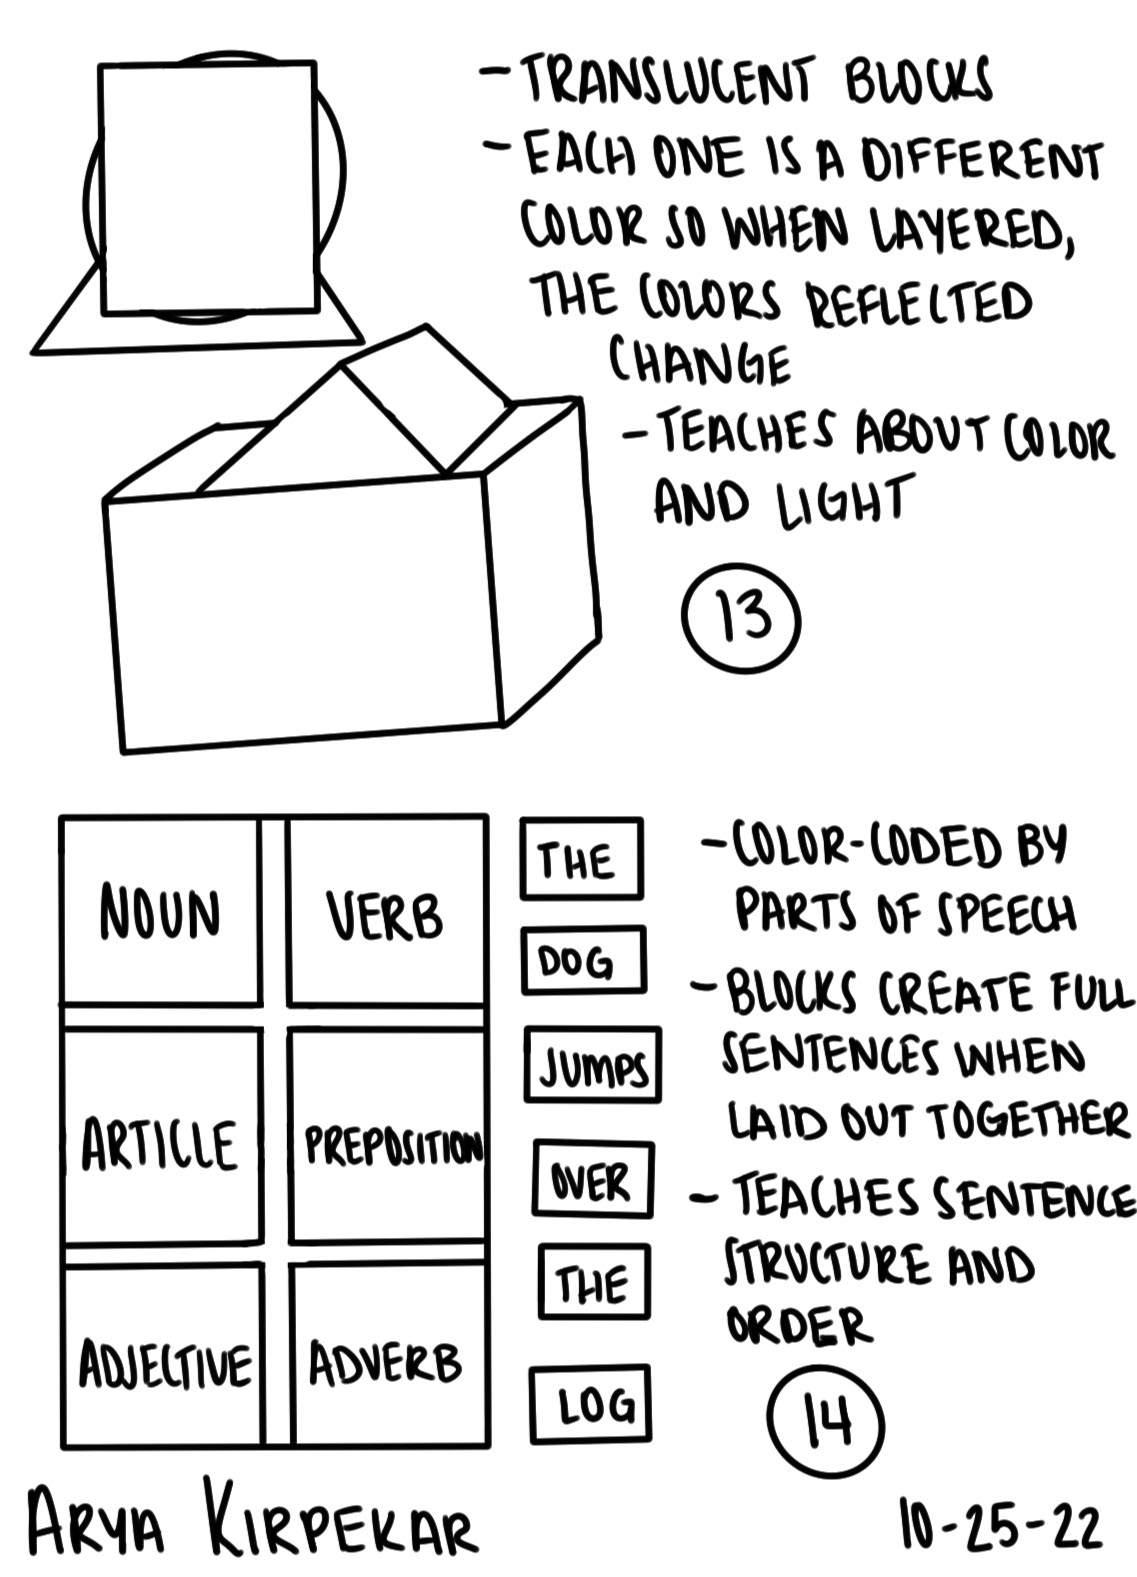 - TRANSLUCENT BLOCKS
- EACH ONE IS A DIFFERENT
COLOR SO WHEN LAYERED,
THE COLORS REFLECTED
CHANGE
- TEACHES ABOUT COLOR
AND LIGHT
13
NOUN
VERB
ARTICLE
PREPOSITION
ADJECTIVE
ADVERB
THE
DOG
JUMPS
OVER
THE
LOG
- COLOR-CODED BY
PARTS OF SPEECH
- BLOCKS CREATE FULL
SENTENCES WHEN
LAID OUT TOGETHER
- TEACHES SENTENCE
STRUCTURE AND
ORDER
14
ARYA KIRPEKAR
10-25-22